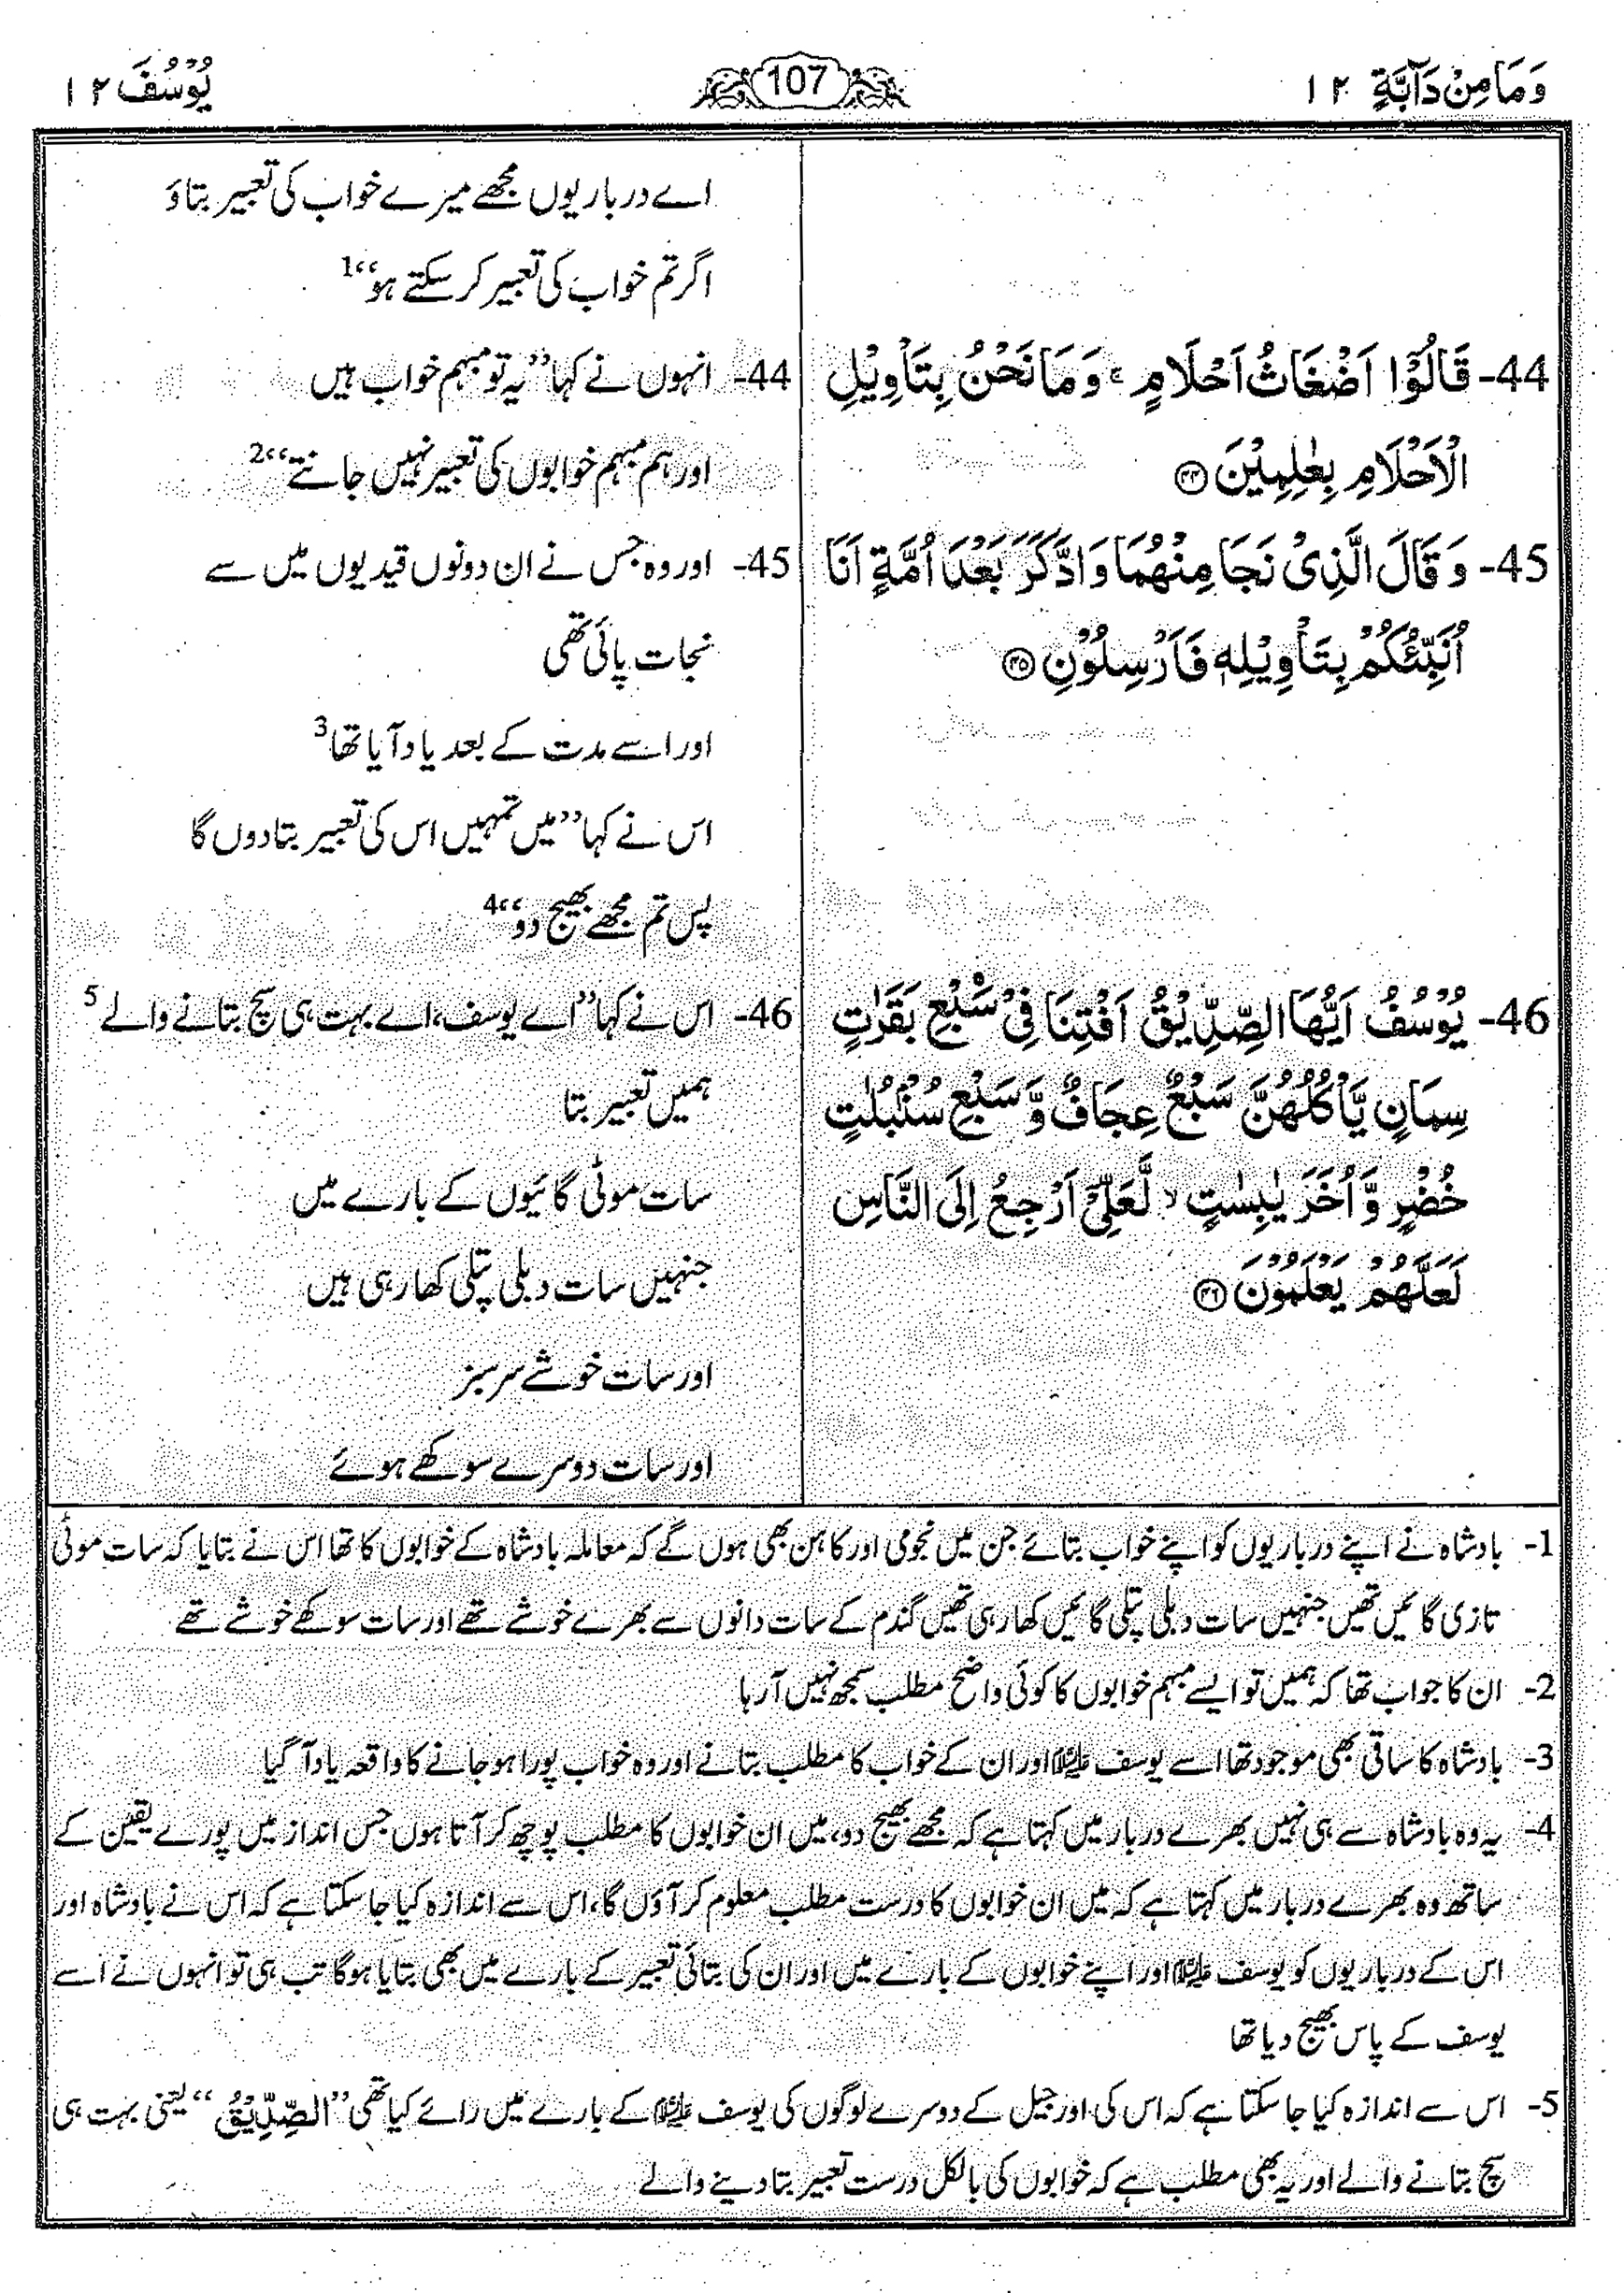 وَمَا مِنْ دَآبَّةٍ ۱۲
107
يُوْسُفَ ۱۲
اے درباریوں مجھے میرے خواب کی تعبیر بتاؤ
اگر تم خواب کی تعبیر کر سکتے ہو‘‘1
44- قَالُوْٓا اَضْغَاثُ اَحْلَامٍ ۚ وَمَا نَحْنُ بِتَاْوِيْلِ
الْاَحْلَامِ بِعٰلِمِيْنَ ۴۴
44- انہوں نے کہا ’’یہ تو مبہم خواب ہیں
اور ہم مبہم خوابوں کی تعبیر نہیں جانتے‘‘2
45- وَقَالَ الَّذِيْ نَجَا مِنْهُمَا وَادَّكَرَ بَعْدَ اُمَّةٍ اَنَا
اُنَبِّئُكُمْ بِتَاْوِيْلِهٖ فَاَرْسِلُوْنِ ۴۵
45- اور وہ جس نے ان دونوں قیدیوں میں سے
نجات پائی تھی
اور اسے مدت کے بعد یاد آیا تھا3
اس نے کہا ’’میں تمہیں اس کی تعبیر بتا دوں گا
پس تم مجھے بھیج دو‘‘4
46- يُوْسُفُ اَيُّهَا الصِّدِّيْقُ اَفْتِنَا فِيْ سَبْعِ بَقَرٰتٍ
سِمَانٍ يَّاْكُلُهُنَّ سَبْعٌ عِجَافٌ وَّسَبْعِ سُنْۢبُلٰتٍ
خُضْرٍ وَّاُخَرَ يٰبِسٰتٍ ۙ لَّعَلِّيْٓ اَرْجِعُ اِلَى النَّاسِ
لَعَلَّهُمْ يَعْلَمُوْنَ ۴۶
46- اس نے کہا ’’اے یوسف، اے بہت ہی سچ بتانے والے5
ہمیں تعبیر بتا
سات موٹی گائیوں کے بارے میں
جنہیں سات دبلی پتلی کھا رہی ہیں
اور سات خوشے سرسبز
اور سات دوسرے سوکھے ہوئے
1- بادشاہ نے اپنے درباریوں کو اپنے خواب بتائے جن میں نجومی اور کاہن بھی ہوں گے کہ معاملہ بادشاہ کے خوابوں کا تھا اس نے بتایا کہ سات موٹی
تازی گائیں تھیں جنہیں سات دبلی پتلی گائیں کھا رہی تھیں گندم کے سات دانوں سے بھرے خوشے تھے اور سات سوکھے خوشے تھے
2- ان کا جواب تھا کہ ہمیں تو ایسے مبہم خوابوں کا کوئی واضح مطلب سمجھ نہیں آ رہا
3- بادشاہ کا ساقی بھی موجود تھا اسے یوسف علیہ السلام اور ان کے خواب کا مطلب بتانے اور وہ خواب پورا ہو جانے کا واقعہ یاد آ گیا
4- یہ وہ بادشاہ سے ہی نہیں بھرے دربار میں کہتا ہے کہ مجھے بھیج دو، میں ان خوابوں کا مطلب پوچھ کر آتا ہوں جس انداز میں پورے یقین کے
ساتھ وہ بھرے دربار میں کہتا ہے کہ میں ان خوابوں کا درست مطلب معلوم کر آؤں گا، اس سے اندازہ کیا جا سکتا ہے کہ اس نے بادشاہ اور
اس کے درباریوں کو یوسف علیہ السلام اور اپنے خوابوں کے بارے میں اور ان کی بتائی تعبیر کے بارے میں بھی بتایا ہوگا تب ہی تو انہوں نے اسے
یوسف کے پاس بھیج دیا تھا
5- اس سے اندازہ کیا جا سکتا ہے کہ اس کی اور جیل کے دوسرے لوگوں کی یوسف علیہ السلام کے بارے میں رائے کیا تھی ’’الصِّدِّيْقُ‘‘ یعنی بہت ہی
سچ بتانے والے اور یہ بھی مطلب ہے کہ خوابوں کی بالکل درست تعبیر بتا دینے والے